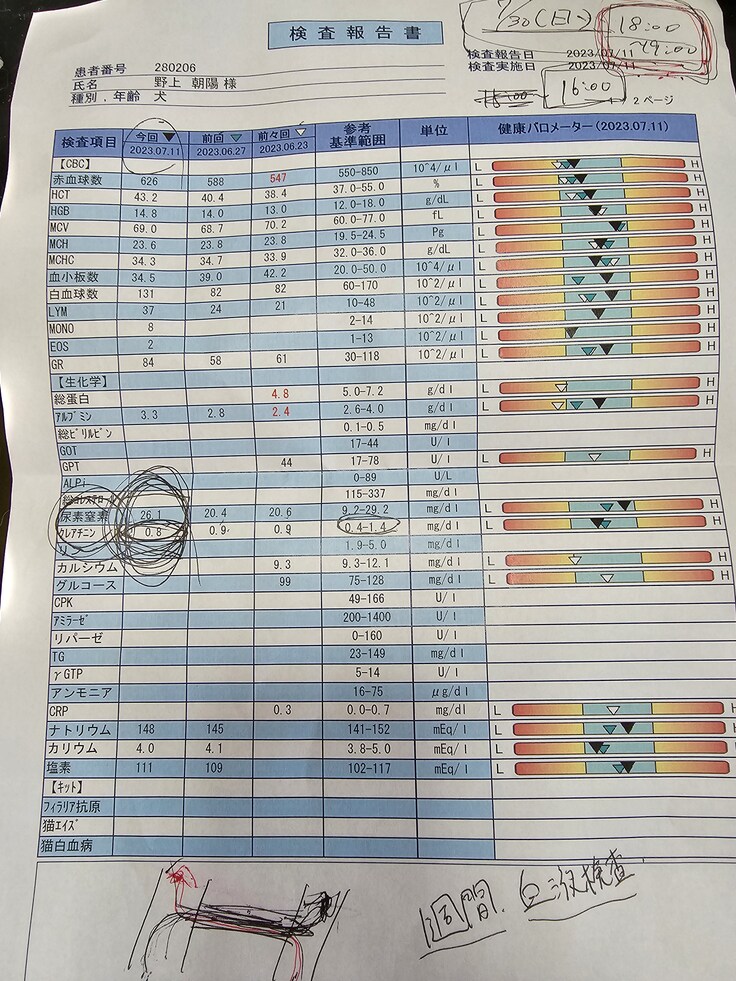 7/30(日)
18:00
~19:00
検査報告書
検査報告日 2023/07/11
検査実施日 2023/07/11
患者番号 280206
氏名 野上 朝陽 様
種別.年齢 犬
16:00
2ページ
検査項目 今回▼ 2023.07.11 前回▼ 2023.06.27 前々回▽ 2023.06.23 参考基準範囲 単位 健康バロメーター(2023.07.11)
【CBC】
赤血球数 626 588 547 550-850 10^4/μl L H
HCT 43.2 40.4 38.4 37.0-55.0 % L H
HGB 14.8 14.0 13.0 12.0-18.0 g/dL L H
MCV 69.0 68.7 70.2 60.0-77.0 fL L H
MCH 23.6 23.8 23.8 19.5-24.5 Pg L H
MCHC 34.3 34.7 33.9 32.0-36.0 g/dL L H
血小板数 34.5 39.0 42.2 20.0-50.0 10^4/μl L H
白血球数 131 82 82 60-170 10^2/μl L H
LYM 37 24 21 10-48 10^2/μl L H
MONO 8 2-14 10^2/μl L H
EOS 2 1-13 10^2/μl L H
GR 84 58 61 30-118 10^2/μl L H
【生化学】
総蛋白 4.8 5.0-7.2 g/dl L H
アルブミン 3.3 2.8 2.4 2.6-4.0 g/dl L H
総ビリルビン 0.1-0.5 mg/dl
GOT 17-44 U/l
GPT 44 17-78 U/l L H
ALPi 0-89 U/L
総コレステロール 115-337 mg/dl
尿素窒素 26.1 20.4 20.6 9.2-29.2 mg/dl L H
クレアチニン 0.8 0.9 0.9 0.4-1.4 mg/dl L H
リン 1.9-5.0 mg/dl
カルシウム 9.3 9.3-12.1 mg/dl L H
グルコース 99 75-128 mg/dl L H
CPK 49-166 U/l
アミラーゼ 200-1400 U/l
リパーゼ 0-160 U/l
TG 23-149 mg/dl
γGTP 5-14 U/l
アンモニア 16-75 μg/dl
CRP 0.3 0.0-0.7 mg/dl L H
ナトリウム 148 145 141-152 mEq/l L H
カリウム 4.0 4.1 3.8-5.0 mEq/l L H
塩素 111 109 102-117 mEq/l L H
【キット】
フィラリア抗原
猫エイズ
猫白血病
1週間.